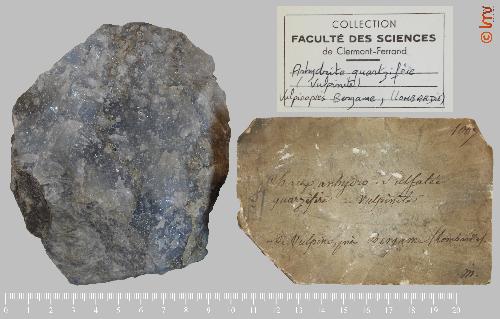 COLLECTION
FACULTÉ DES SCIENCES
de Clermont-Ferrand
Anhydrite quartzifère
(Vulpinite)
Bergame, (LOMBARDIE)
© lmv
1007
anhydro-sulfatée
quarzifère - Vulpinite
- de Vulpino, près Bergame (Lombardie).
m.
0 1 2 3 4 5 6 7 8 9 10 11 12 13 14 15 16 17 18 19 20